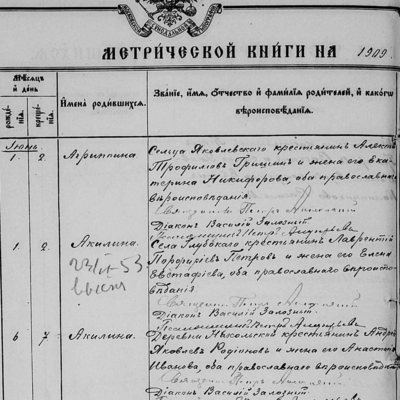 МЕТРИ́ЧЕСКОЙ КНИ́ГИ НА 1909
Мѣсяцъ и день
рожде́нія.
креще́нія.
Имена родившихся.
Зва́ніе, имя, отчество и фамилія родителей, и какого вѣроисповѣданія.
Іюнь
1 2 Агриппина
Сельца Яковлевскаго крестьянинъ Алексѣй
Трофимовъ Гришинъ и жена его Ека-
терина Никифорова, оба православнаго
вѣроисповѣданія.
Священникъ Петръ
Діаконъ Василій Залозный
Псаломщикъ Петръ
1. 2. Акилина.
Села Глубокаго крестьянинъ Лаврентій
Порфиріевъ Петровъ и жена его Елена
Евстафіева, оба православнаго вѣроиспо-
вѣданія
53
Священникъ Петръ
Діаконъ Василій Залозный
Псаломщикъ Петръ
6 7 Акилина.
Деревни Никольской крестьянинъ Андрей
Яковлевъ Родіоновъ и жена его Анастасія
Иванова, оба православнаго вѣроисповѣд
Священникъ Петръ
Діаконъ Василій Залозный